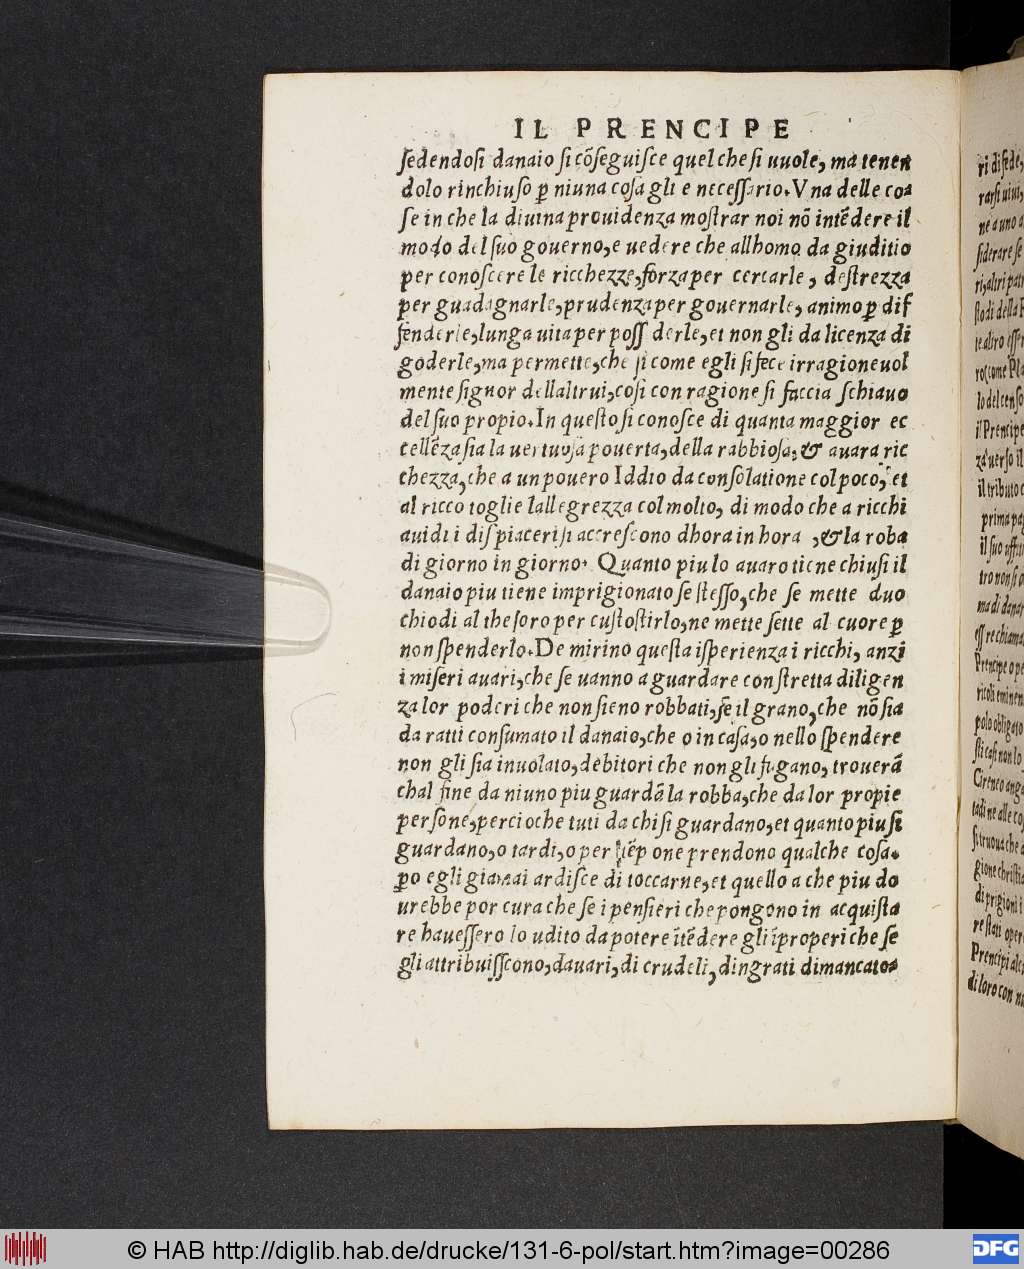 IL PRENCIPE
ſedendoſi danaio ſi cōſeguiſce quel che ſi uuole, ma tenen
dolo rinchiuſo ꝑ niuna coſa gli e neceſſario. Vna delle co-
ſe in che la diuina prouidenza moſtrar noi nō intēdere il
modo del ſuo gouerno, e uedere che allhomo da giuditio
per conoſcere le ricchezze, forza per cercarle, deſtrezza
per guadagnarle, prudenza per gouernarle, animo ꝑ dif
fenderle, lunga uita per poſſ derle, et non gli da licenza di
goderle, ma permette, che ſi come egli ſi fece irragioneuol
mente ſignor dellaltrui, coſi con ragione ſi faccia ſchiauo
del ſuo propio. In queſto ſi conoſce di quanta maggior ec
cellēza ſia la uertuoſa pouerta, della rabbioſa, & auara ric
chezza, che a un pouero Iddio da conſolatione col poco, et
al ricco toglie lallegrezza col molto, di modo che a ricchi
auidi i diſpiaceri ſi accreſcono dhora in hora, & la roba
di giorno in giorno. Quanto piu lo auaro tiene chiuſi il
danaio piu tiene imprigionato ſe ſteſſo, che ſe mette duo
chiodi al theſoro per cuſtoſtirlo, ne mette ſette al cuore ꝑ
non ſpenderlo. De mirino queſta iſperienza i ricchi, anzi
i miſeri auari, che ſe uanno a guardare con ſtretta diligen
za lor poderi che non ſieno robbati, ſe il grano, che nō ſia
da ratti conſumato il danaio, che o in caſa, o nello ſpendere
non gli ſia inuolato, debitori che non gli fugano, trouerā
chal fine da niuno piu guardā la robba, che da lor propie
perſone, percioche tuti da chi ſi guardano, et quanto piu ſi
guardano, o tardi, o per tēpo ne prendono qualche coſa.
ꝑo egli giamai ardiſce di toccarne, et quello a che piu do
urebbe por cura che ſe i penſieri che pongono in acquiſta
re haueſſero lo udito da potere ītēdere gli īproperi che ſe
gli attribuiſſcono, dauari, di crudeli, dingrati di mancato-
© HAB http://diglib.hab.de/drucke/131-6-pol/start.htm?image=00286
DFG